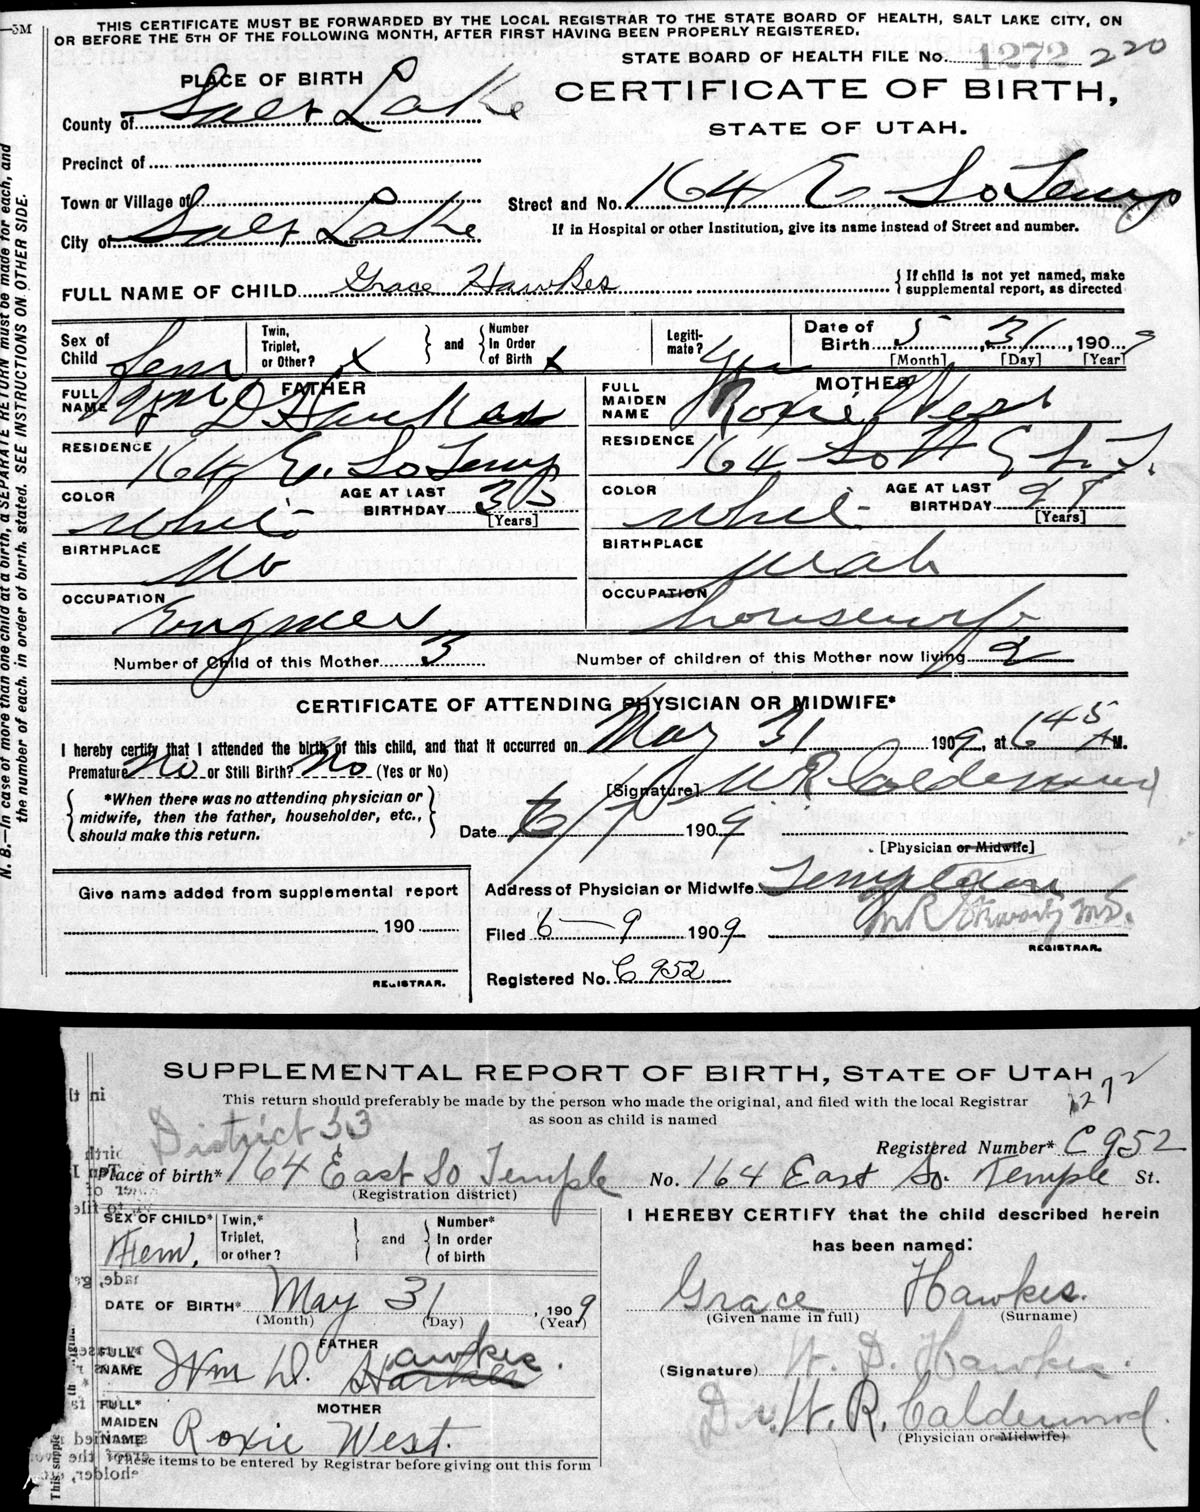 —5M
THIS CERTIFICATE MUST BE FORWARDED BY THE LOCAL REGISTRAR TO THE STATE BOARD OF HEALTH, SALT LAKE CITY, ON
OR BEFORE THE 5TH OF THE FOLLOWING MONTH, AFTER FIRST HAVING BEEN PROPERLY REGISTERED.
STATE BOARD OF HEALTH FILE No. 1272 220
PLACE OF BIRTH
CERTIFICATE OF BIRTH,
STATE OF UTAH.
County of Salt Lake
Precinct of
Town or Village of
Street and No. 164 E So Temp
City of Salt Lake
If in Hospital or other Institution, give its name instead of Street and number.
FULL NAME OF CHILD Grace Hawkes
{ If child is not yet named, make
supplemental report, as directed
Sex of Child Fem
Twin, Triplet, or Other? X } and { Number In Order of Birth X
Legitimate? Yes
Date of Birth 5, 31, 1909
[Month] [Day] [Year]
FATHER
FULL NAME Wm D Hawkes
RESIDENCE 164 E. So Temp
COLOR White
AGE AT LAST BIRTHDAY 35
[Years]
BIRTHPLACE Mo
OCCUPATION Engineer
MOTHER
FULL MAIDEN NAME Roxie West
RESIDENCE 164
COLOR White
AGE AT LAST BIRTHDAY
[Years]
BIRTHPLACE Utah
OCCUPATION housewife
Number of Child of this Mother 3
Number of children of this Mother now living 2
CERTIFICATE OF ATTENDING PHYSICIAN OR MIDWIFE*
I hereby certify that I attended the birth of this child, and that it occurred on May 31 1909, at 6 45 A M.
Premature No or Still Birth? No (Yes or No)
{ *When there was no attending physician or
midwife, then the father, householder, etc.,
should make this return. }
[Signature] W R Calderwood
Date 6/7 1909
[Physician or Midwife]
Address of Physician or Midwife Templeton
Give name added from supplemental report
190
REGISTRAR.
Filed 6-9 1909
M R Stewart M.D.
REGISTRAR.
Registered No. C 952
N. B.—In case of more than one child at a birth, a SEPARATE RETURN must be made for each, and
the number of each, in order of birth, stated. SEE INSTRUCTIONS ON OTHER SIDE.
SUPPLEMENTAL REPORT OF BIRTH, STATE OF UTAH
1272
This return should preferably be made by the person who made the original, and filed with the local Registrar
as soon as child is named
District 33
Registered Number* C 952
Place of birth* 164 East So Temple
(Registration district)
No. 164 East So. Temple St.
SEX OF CHILD* Fem.
Twin,* Triplet, or other? } and { Number* In order of birth
DATE OF BIRTH* May 31, 1909
(Month) (Day) (Year)
FATHER
FULL* NAME Wm D. Hawkes.
MOTHER
FULL* MAIDEN NAME Roxie West.
*These items to be entered by Registrar before giving out this form
I HEREBY CERTIFY that the child described herein
has been named:
Grace Hawkes.
(Given name in full) (Surname)
(Signature) W. D. Hawkes.
Dr. W. R. Calderwood.
(Physician or Midwife)
This supple